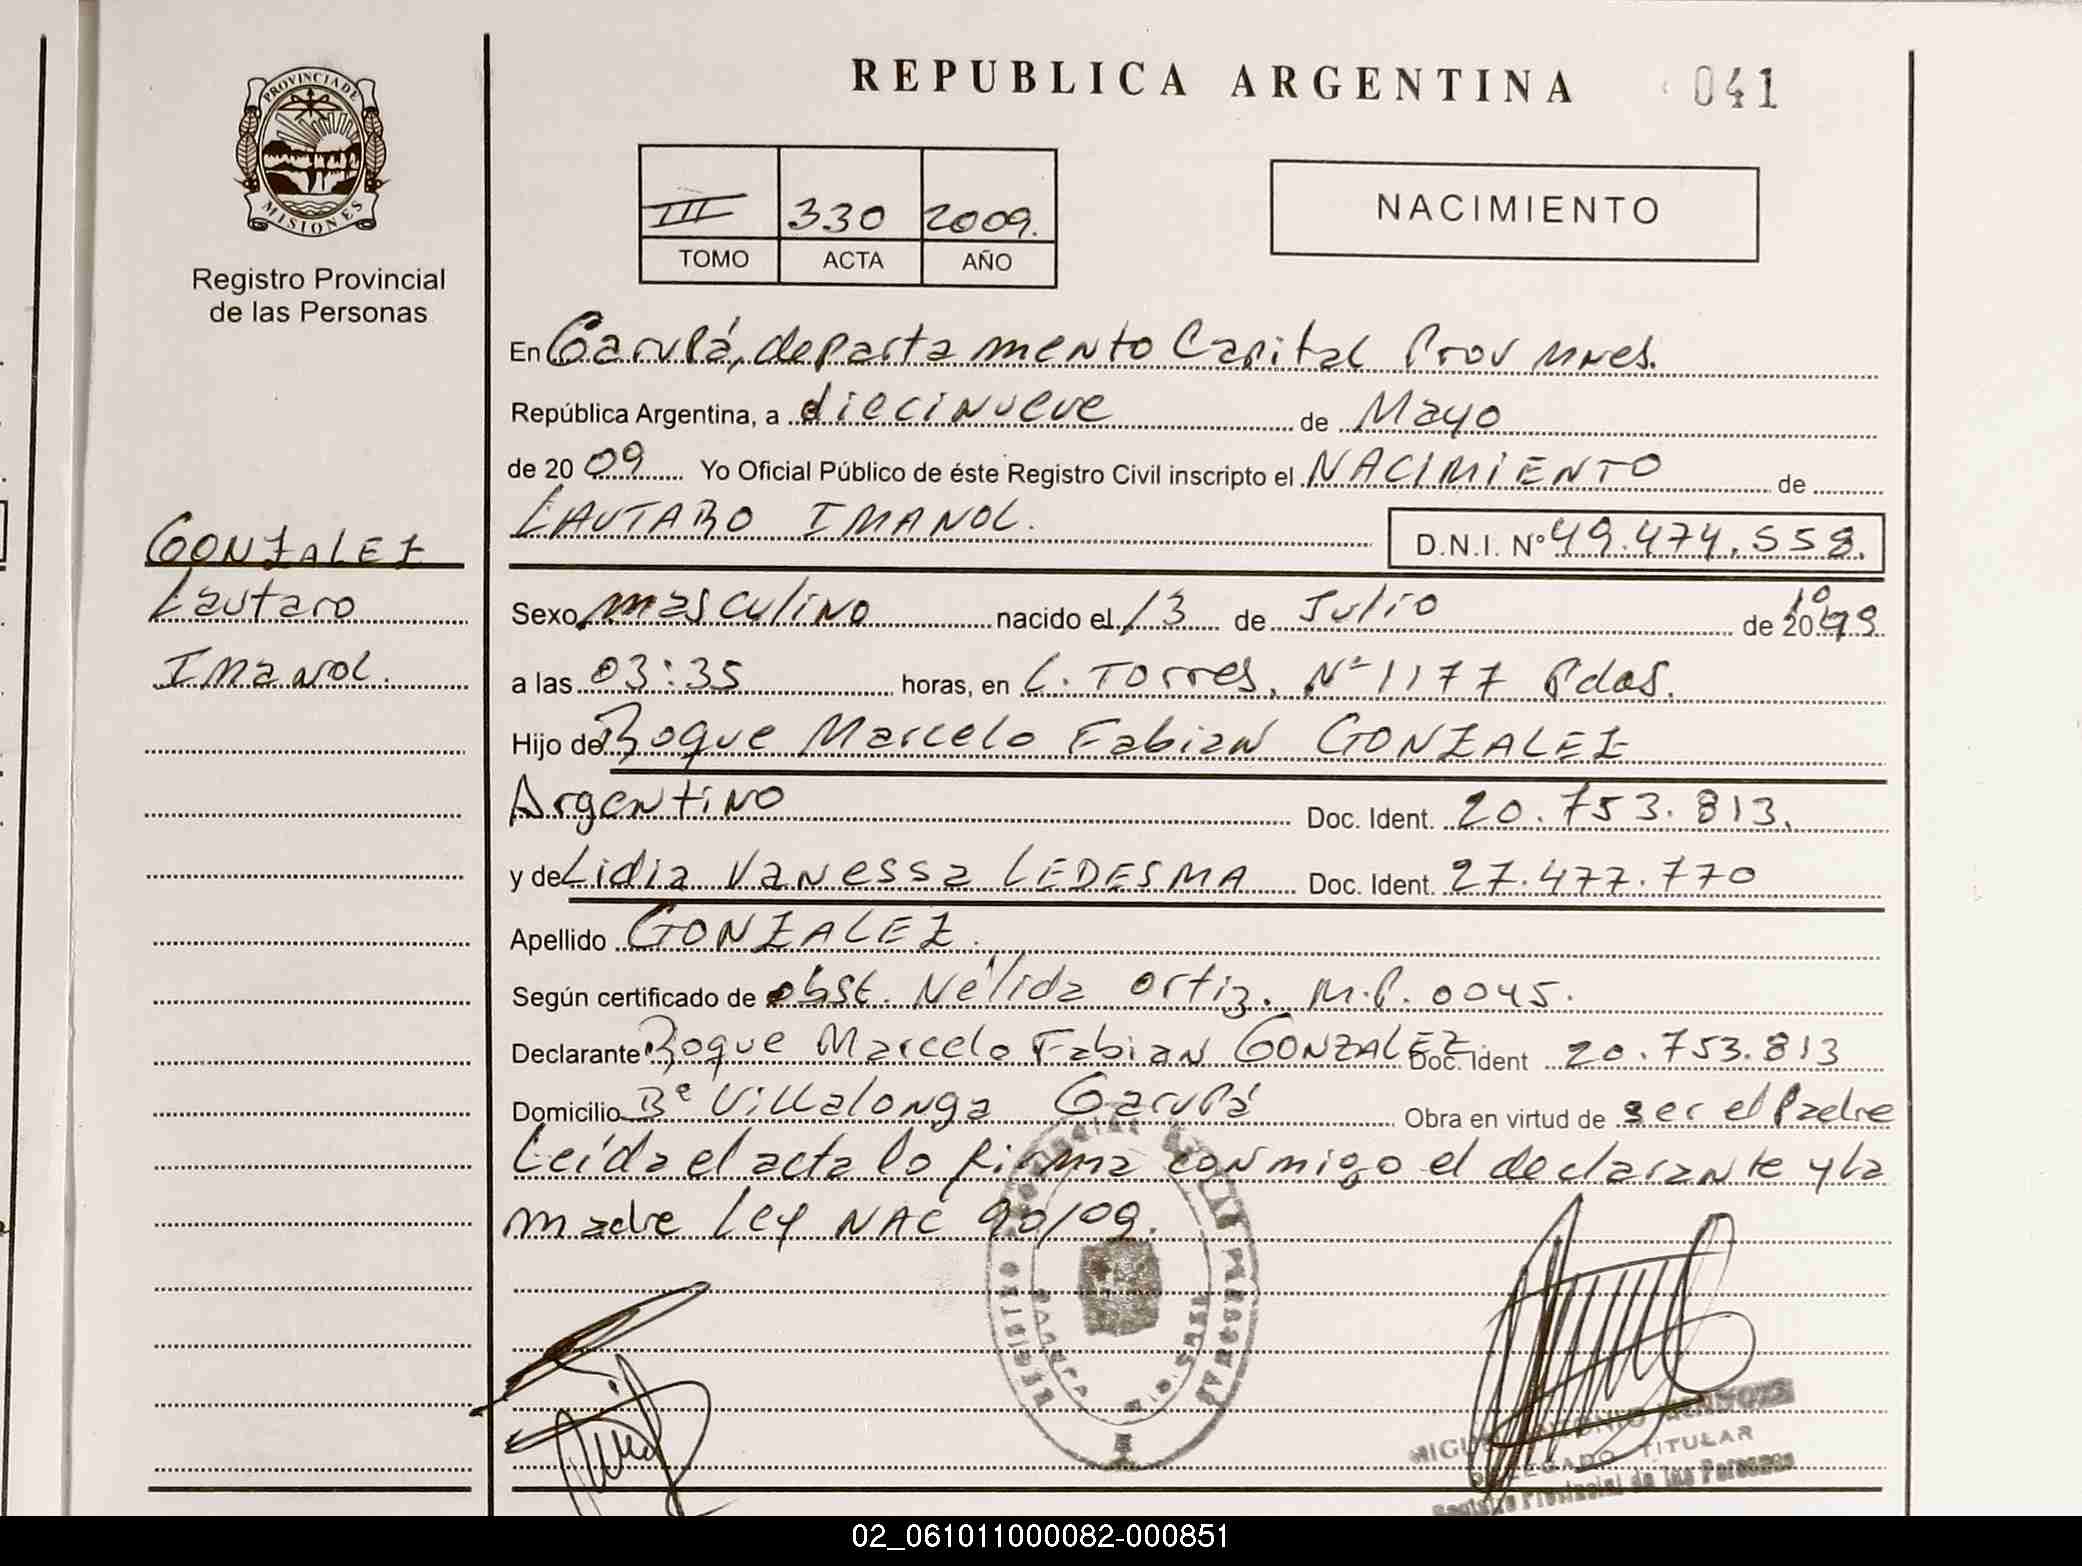 REPUBLICA ARGENTINA 041
PROVINCIA DE
MISIONES
Registro Provincial
de las Personas
III 330 2009.
TOMO ACTA AÑO
NACIMIENTO
En Garupá, departamento Capital Prov Mnes.
República Argentina, a diecinueve de Mayo
de 2009 Yo Oficial Público de éste Registro Civil inscripto el NACIMIENTO de
LAUTARO IMANOL. D.N.I. Nº 49.474.558.
GONZALEZ
Lautaro
Imanol.
Sexo masculino nacido el 13 de Julio de 20
a las 03:35 horas, en L. Torres, Nº 1177 Pdas.
Hijo de Roque Marcelo Fabian GONZALEZ
Argentino Doc. Ident. 20.753.813.
y de Lidia Vanessa LEDESMA Doc. Ident. 27.477.770
Apellido GONZALEZ.
Según certificado de obst. Nélida Ortiz. M.P. 0045.
Declarante Roque Marcelo Fabian GONZALEZ. Doc. Ident 20.753.813
Domicilio Bº Villalonga Garupá Obra en virtud de ser el Padre
Leída el acta lo firma conmigo el declarante y la
madre Ley NAC 90/09.
MIGUEL ANTONIO
DELEGADO TITULAR
Registro Provincial de las Personas
02_061011000082-000851